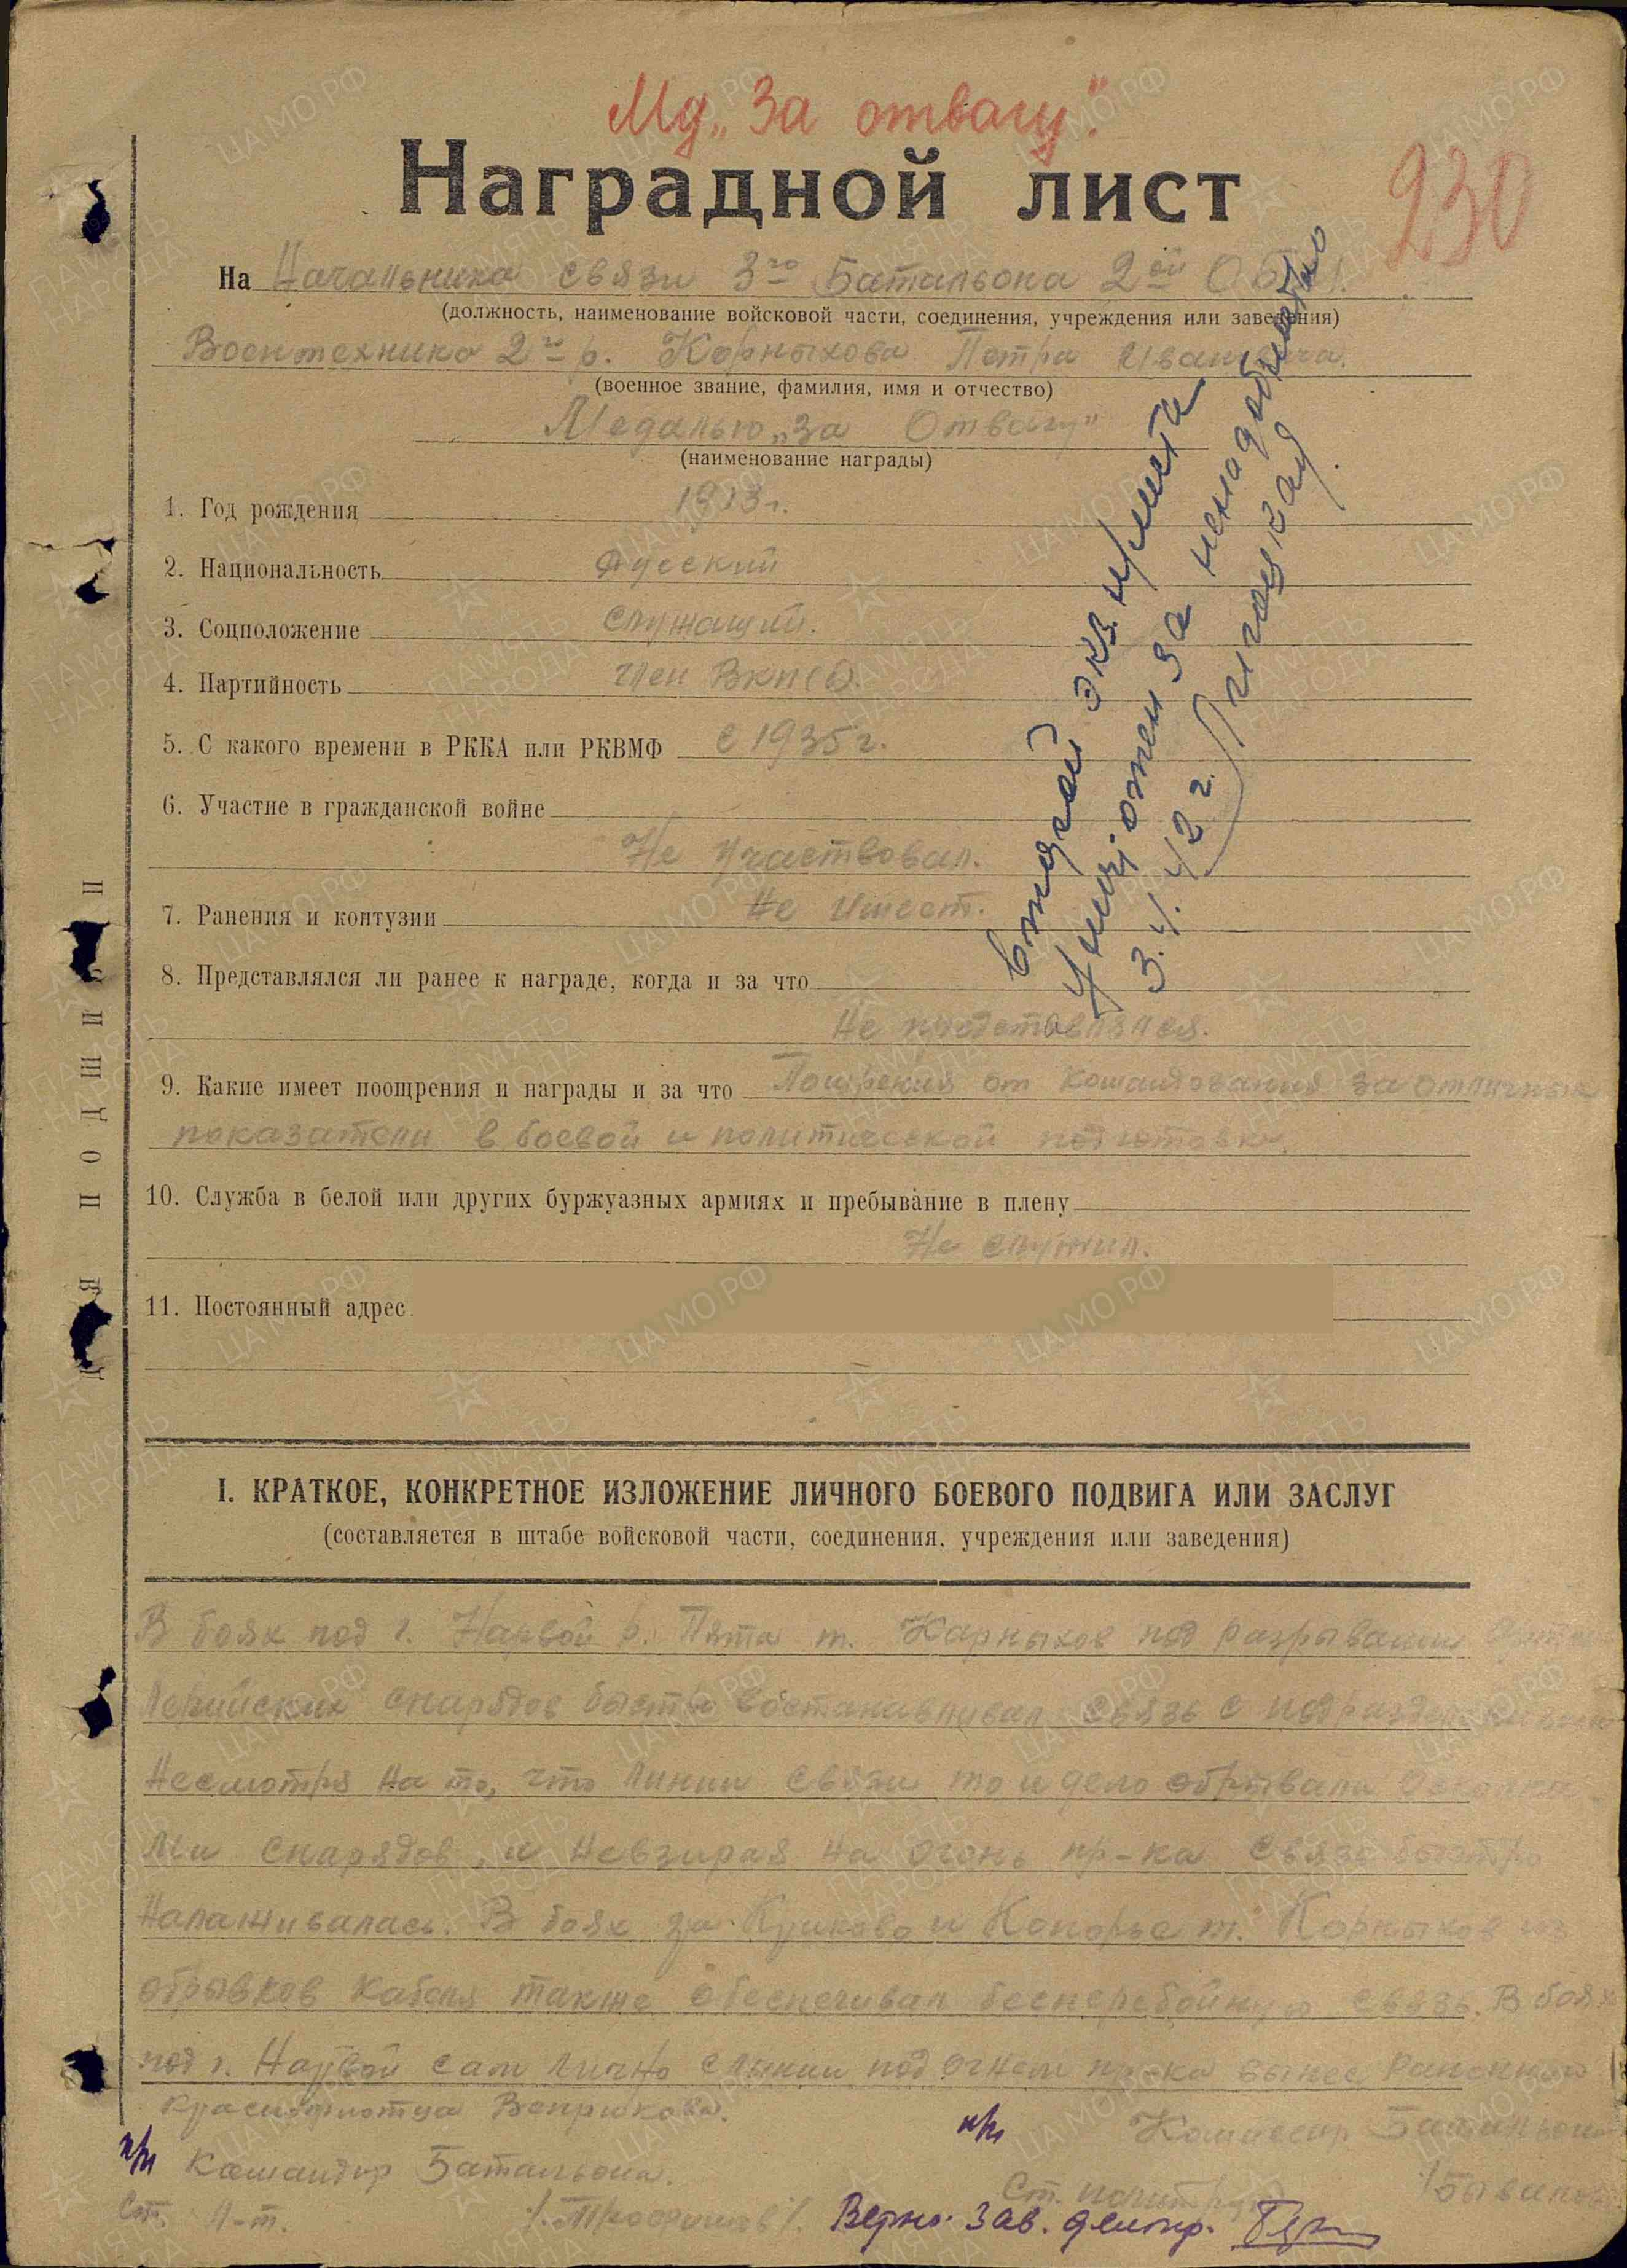 Мд „За отвагу".
230
Наградной лист
На Начальника связи 3го Батальона 2ой
(должность, наименование войсковой части, соединения, учреждения или заведения)
Воентехника 2го р. Корныхова Петра Ивановича.
(военное звание, фамилия, имя и отчество)
Медалью „за Отвагу"
(наименование награды)
1. Год рождения 1913 г.
2. Национальность Русский
3. Соцположение Служащий.
4. Партийность член ВКП(б).
5. С какого времени в РККА или РКВМФ с 1935 г.
6. Участие в гражданской войне
Не участвовал.
7. Ранения и контузии Не имеет.
8. Представлялся ли ранее к награде, когда и за что
Не представлялся.
9. Какие имеет поощрения и награды и за что от командования за отличные
показатели в боевой и политической подготовки.
10. Служба в белой или других буржуазных армиях и пребывание в плену
Не служил.
11. Постоянный адрес
второй экз. н/листа
уничтожен за ненадобностью
3.4.42 г.
ДЛЯ ПОДШИВКИ
I. КРАТКОЕ, КОНКРЕТНОЕ ИЗЛОЖЕНИЕ ЛИЧНОГО БОЕВОГО ПОДВИГА ИЛИ ЗАСЛУГ
(составляется в штабе войсковой части, соединения, учреждения или заведения)
В боях под г. Нарвой р. Пята т. Карныхов под разрывами
снарядов быстро востанавливал связь с
Несмотря на то, что линии связи то и дело обрывали
ми снарядов, и невзирая на огонь пр-ка связь быстро
налаживалась. В боях за и Копорье т. Корныхов из
обрывков кабеля также обеспечивал бесперебойную связь. В боях
под г. Нарвой сам лично с линии под огнем пр-ка вынес раненного
красноармейца
п/п Командир Батальона.
п/п Комиссар Батальона
Ст. л-т.
Ст. политрук
Верно: Зав. делопр.